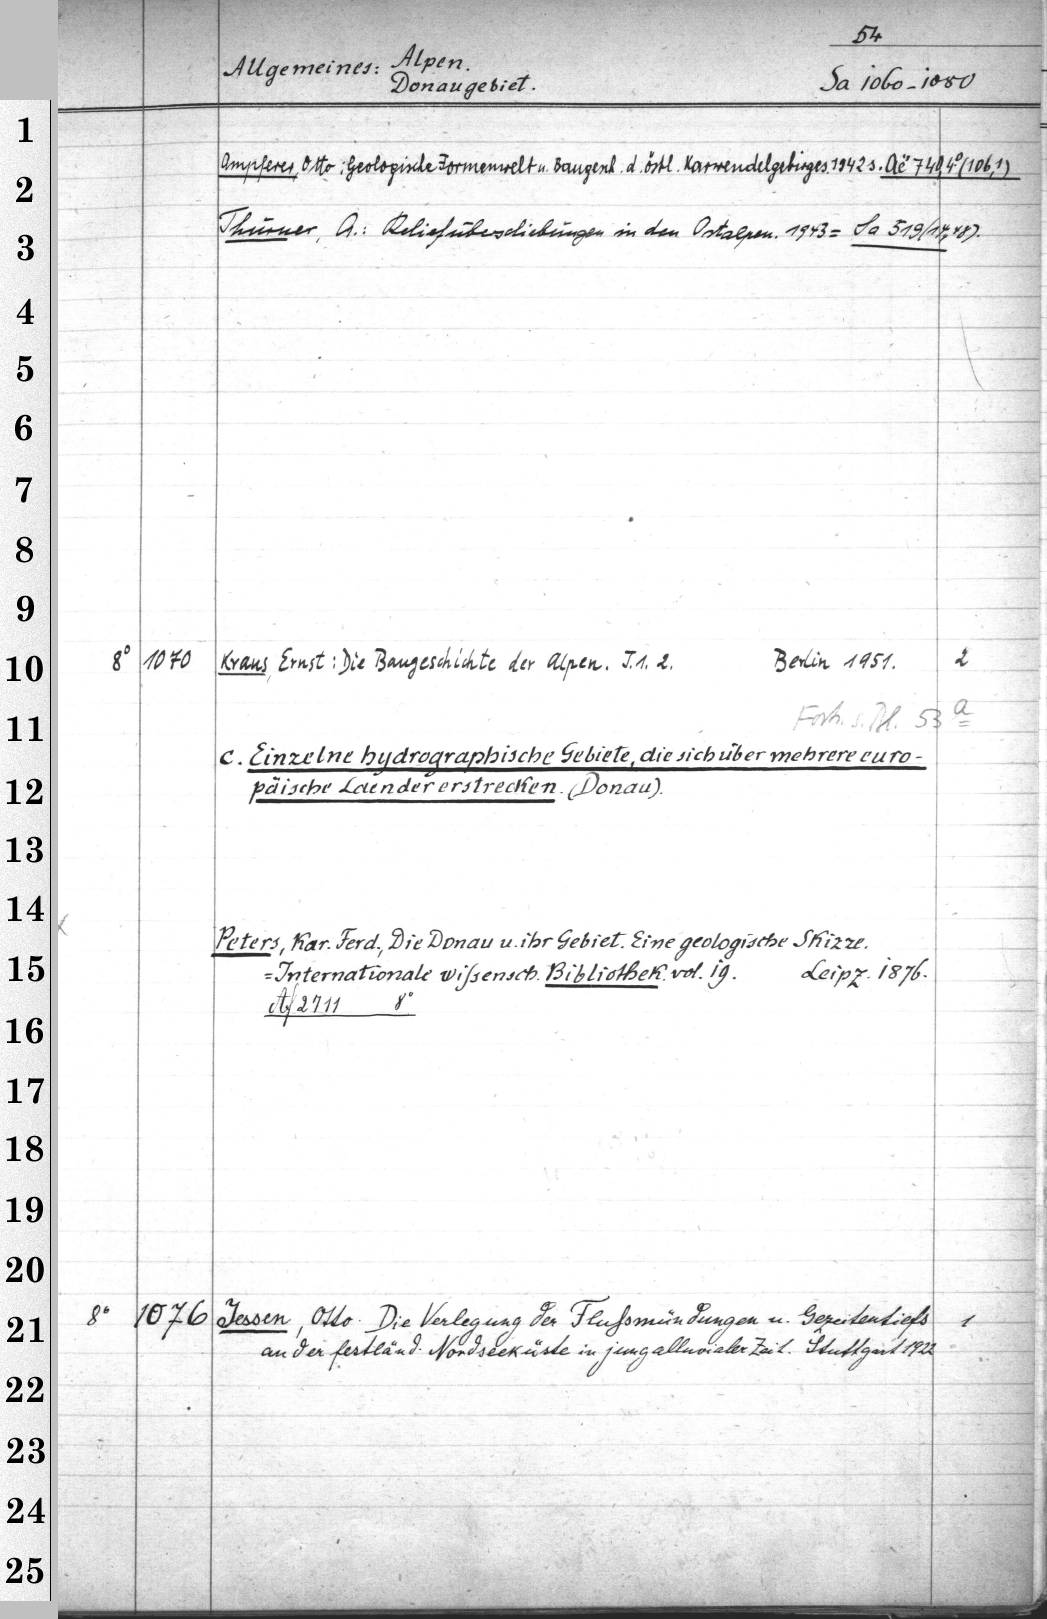 54
Allgemeines: Alpen.
Donaugebiet.
Sa 1060-1080
1
Ampferer, Otto: Geologische Formenwelt u. Baugesch. d. östl. Karwendelgebirges 1942 s. Aë 740, 4° (106,1)
2
Thurner, A.: Reliefüberschiebungen in den Ostalpen. 1943 = Sa 519 (14,48).
3
4
5
6
7
8
9
10 8° 1070 Kraus, Ernst: Die Baugeschichte der Alpen. T.1. 2. Berlin 1951. 2
11 Forts. s. Bl. 53 a
c. Einzelne hydrographische Gebiete, die sich über mehrere euro-
12 päische Laender erstrecken. (Donau).
13
14
Peters, Kar. Ferd., Die Donau u. ihr Gebiet. Eine geologische Skizze.
15 = Internationale wissensch. Bibliothek. vol. 19. Leipz. 1876.
Af 2711 8°
16
17
18
19
20
21 8° 1076 Jessen, Otto. Die Verlegung der Flußmündungen u. Gezeitentiefs 1
an der festländ. Nordseeküste in jungalluvialer Zeit. Stuttgart 1922
22
23
24
25